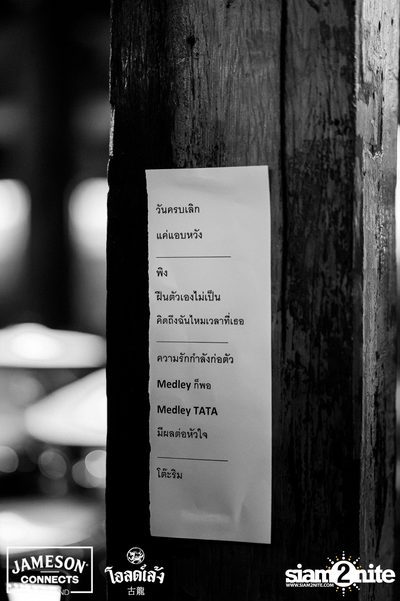 วันครบเลิก
แค่แอบหวัง
พิง
ฝืนตัวเองไม่เป็น
คิดถึงฉันไหมเวลาที่เธอ
ความรักกำลังก่อตัว
Medley ก็พอ
Medley TATA
มีผลต่อหัวใจ
โต๊ะริม
JAMESON
CONNECTS
โอลด์เล้ง
古龍
siam2nite
WWW.SIAM2NITE.COM